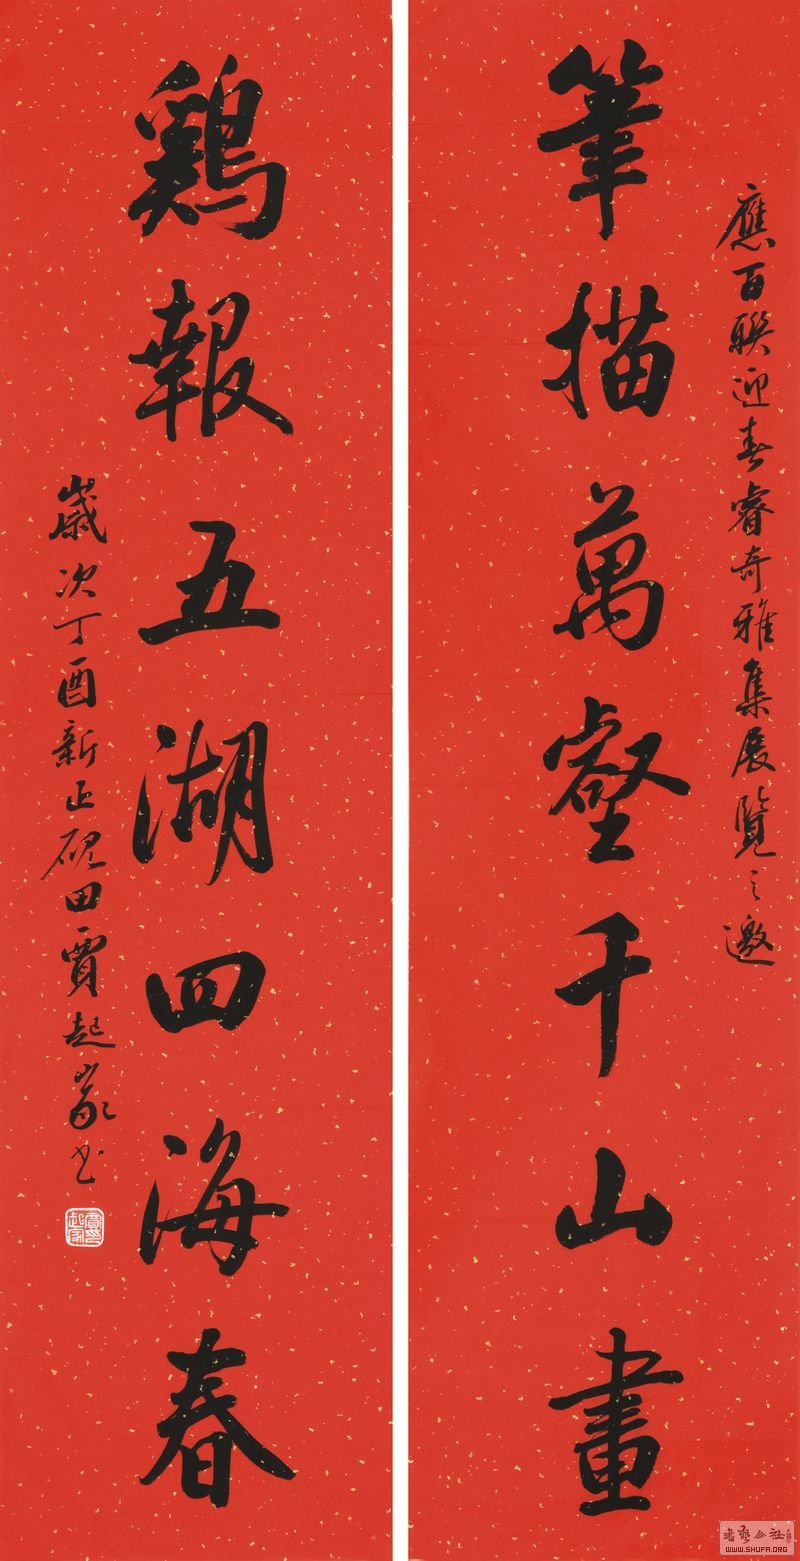 應百联迎春睿奇雅集展覽之邀
筆描萬壑千山畫
鷄報五湖四海春
歲次丁酉新正硯田賈起家书
書藝公社
WWW.SHUFA.ORG